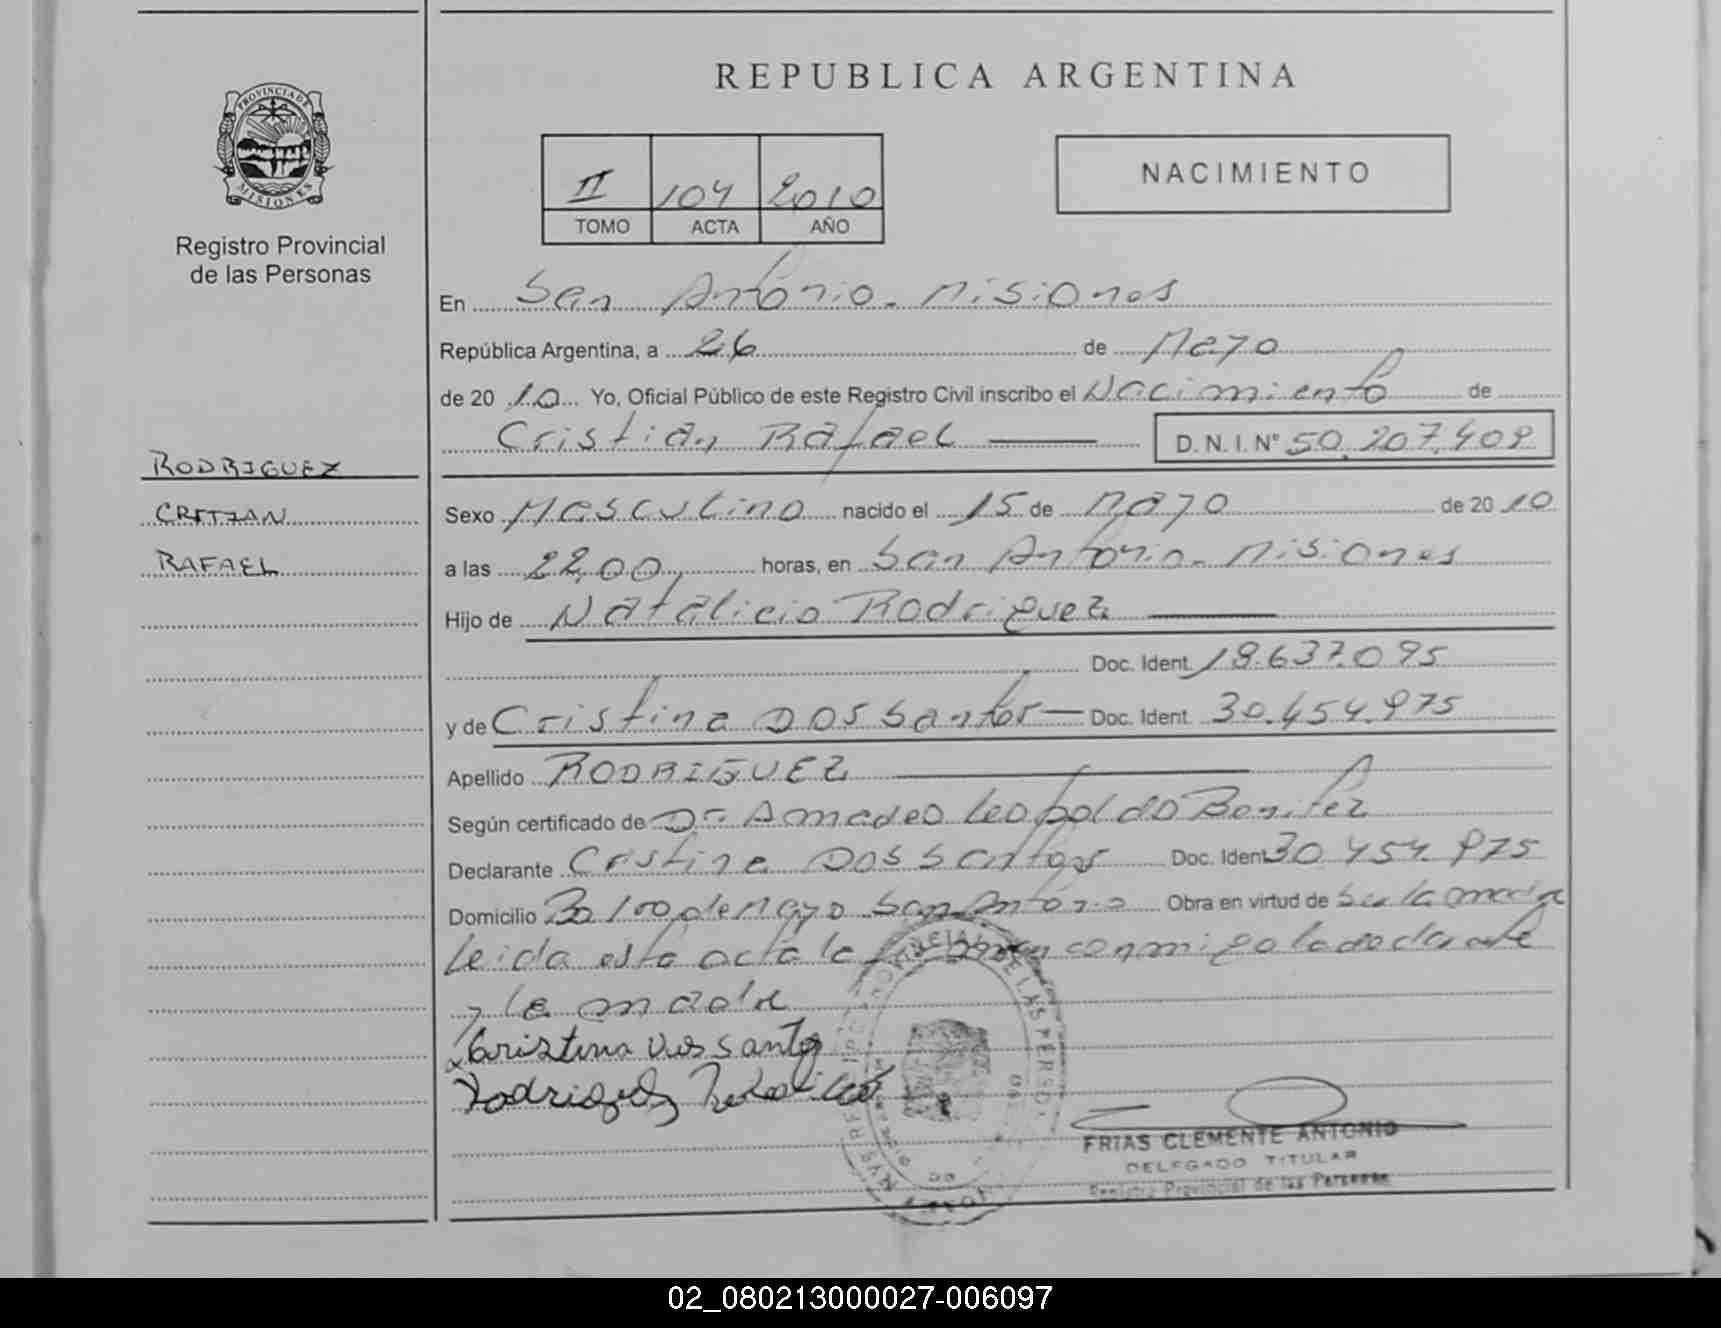 REPUBLICA ARGENTINA
PROVINCIA DE
MISIONES
Registro Provincial
de las Personas
II 104 2010
TOMO ACTA AÑO
NACIMIENTO
En San Antonio - Misiones
República Argentina, a 26 de Mayo
de 2010 Yo, Oficial Público de este Registro Civil inscribo el Nacimiento de
Cristian Rafael D. N. I. Nº 50.207.409
RODRIGUEZ
CRITIAN
RAFAEL
Sexo Masculino nacido el 15 de Mayo de 2010
a las 22,00 horas, en San Antonio - Misiones
Hijo de Natalicio Rodriguez
Doc. Ident. 18.637.095
y de Cristina Dos Santos Doc. Ident. 30.454.975
Apellido RODRIGUEZ
Según certificado de Dr. Amadeo Leopoldo Benitez
Declarante Cristina Dos Santos Doc. Ident 30.454.975
Domicilio Bº 1º de Mayo San Antonio Obra en virtud de ser la madre
Leida esta acta la firman conmigo la declarante
y la madre
Cristina Dos Santos
Rodriguez Natalicio
FRIAS CLEMENTE ANTONIO
DELEGADO TITULAR
Registro Provincial de las Personas
02_080213000027-006097